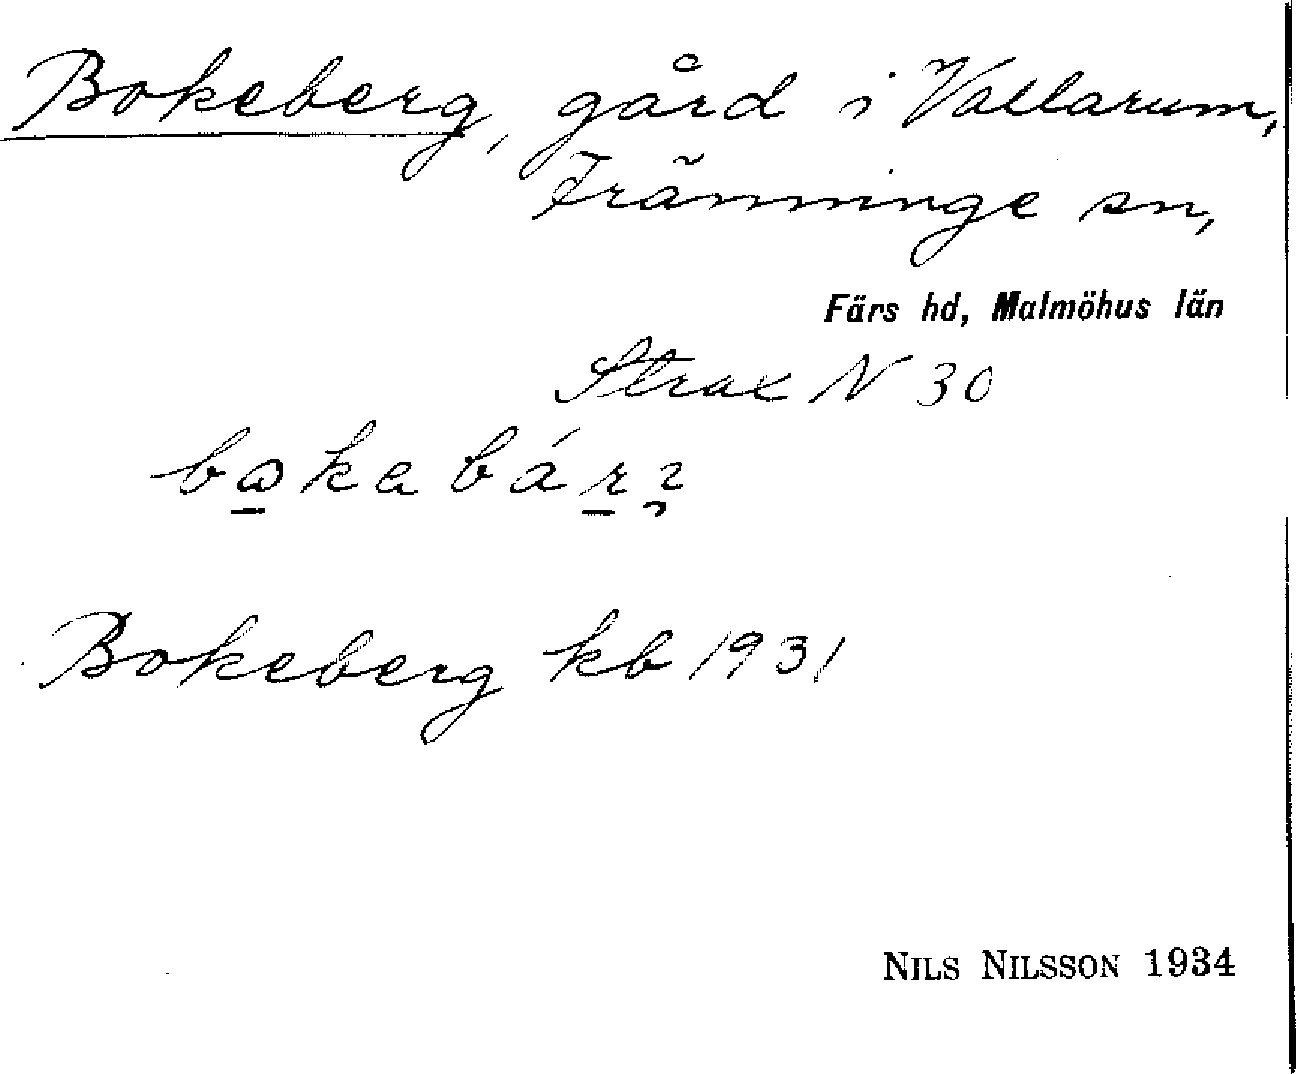 Bokeberg, gård i Vallarum,
Främminge sn,
Färs hd, Malmöhus län
Strax N 30
Bokeberg kb 1931
NILS NILSSON 1934